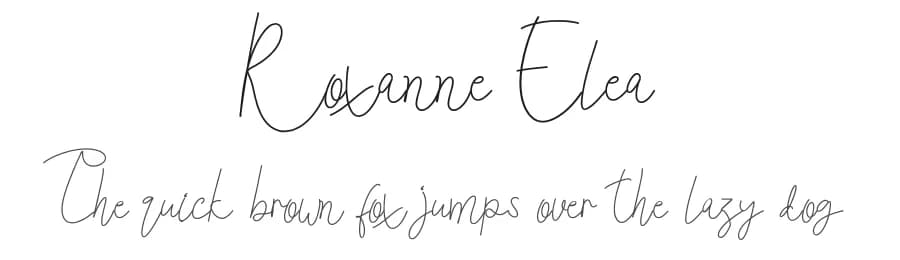 Roxanne Elea
The quick brown fox jumps over the lazy dog